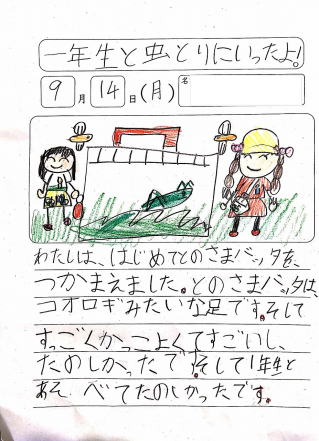 一年生と虫とりにいったよ!
9月14日(月)
名
わたしは、はじめてとのさまバッタを、
つかまえました。とのさまバッタは、
コオロギみたいな足です。そして
すっごくかっこよくてすごいし、
たのしかったで。そして1年生と
あそべてたのしかったです。